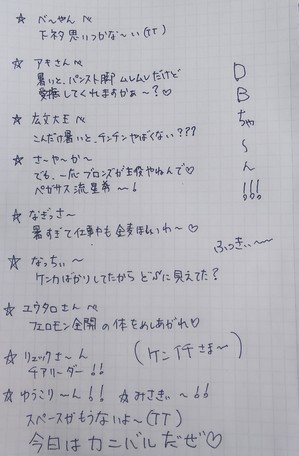 ☆ べ〜やん へ
下ネタ思いつかな〜い(TT)
☆ アキさん へ
暑いと、パンスト脚 ムレムレだけど
愛撫してくれますかぁ〜?♡
☆ 友文大王 へ
こんだけ暑いと、チンチンやばくない???
☆ さ〜や〜か〜
でも、一応ブロンズが主役やねんで♡
ペガサス流星拳〜!
☆ なぎっさ〜
暑すぎて仕事中も金麦ほしいわ〜♡
☆ なっちぃ〜
ケンカばかりしてたからどぶに見えてた?
☆ ユウタロさん へ
フェロモン全開の体をめしあがれ♡
☆ リュックさ〜ん
チアリーダー!!
☆ ゆうこりーん!! ☆ みさきぃ〜!!
スペースがもうないよ〜(TT)
今日はカニバルだぜ♡
DBちゃ〜ん!!!
ふっきぃ〜〜
(ケンイチさま〜)